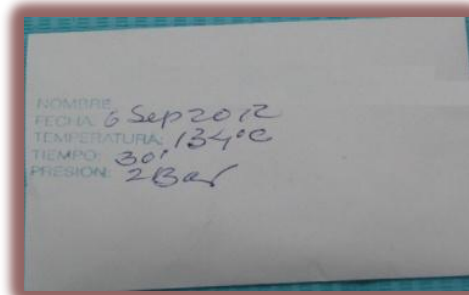 NOMBRE:
FECHA: 6 Sep 2012
TEMPERATURA: 134°C
TIEMPO: 30'
PRESION: 2 Bar